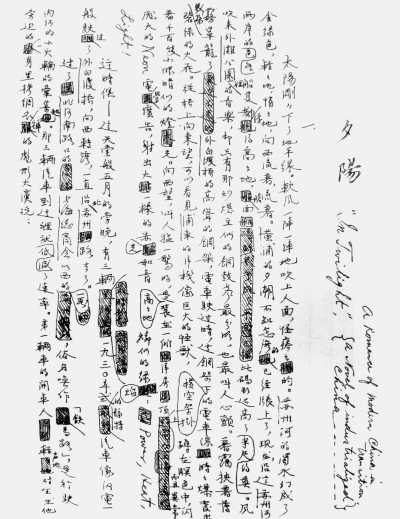 夕陽
"In Twilight"
a Romance of modern China in transition
(a Novel of industrialized China
一
太陽剛剛下了地平綫。軟風一陣一陣地吹上人面,怪癢癢的。蘇州河的濁水幻成了
金綠色,輕輕地,悄悄地,向西流去。黃浦的夕潮不知怎的已經漲上了,現在沿這蘇州河
兩岸的各色船隻都浮得高高地,艙面比碼頭還高了半尺。風
吹來外灘公園的音樂,却只有那炒豆似的銅鼓聲最分明,也最叫人興奮。暮靄挾着薄
霧籠罩了外白渡橋的高聳的鋼架,電車駛過時,這鋼架下橫空架掛的電車線時時爆發出
碧綠的火花。從橋上向東望,可以看見浦東的洋棧像巨大的怪獸,蹲在暝色中,閃
着千百隻小眼睛似的燈火。向西望,叫人猛一驚的,是高高地裝在一所洋房頂上而且異常
龐大的Neon電管廣告,射出火一樣的赤光和青燐似的綠焰:
Light, Heat, Power!
這時候——這天堂般五月的傍晚,有三輛一九三〇年式的汽車像閃電一
般駛過了外白渡橋,向西轉彎,一直沿北蘇州路去了。
過了北河南路口的上海總商會以西的一段,俗名喚作「鐵馬路」,是行駛
內河的小火輪的彙集處。那三輛汽車到這裡就減低了速率。第一輛車的開車人輕聲地對坐在他
旁邊的穿一身黑拷綢衣褲的彪形大漢說: